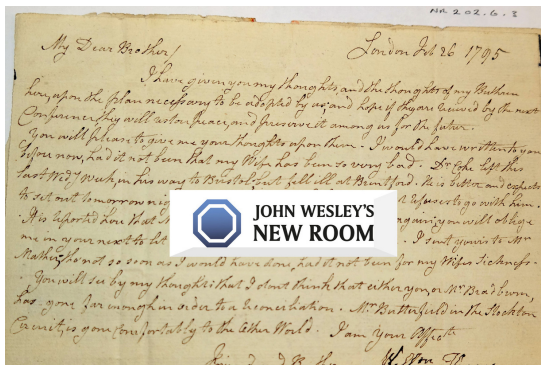 NR 202.6.3
My Dear Brother! London Feb 26 1795
I have given you my thoughts, and the thoughts of my Brethren
here, upon the plan necessary to be adopted by us; and hope if they are viewed by the next
Conference, they will restore peace, and preserve it among us for the future.
You will please to give me your thoughts upon them. I would have written to you
before now, had it not been that my Wife has been so very bad. Dr Coke left this
last Wedy Week, in his way to Bristol, but fell ill at Brentford. He is better and expects
to set out tomorrow to go with him.
It is reported here that again; you will oblige
me in your next to let I sent yours to Mr
Mather, tho' not so soon as I would have done, had it not been for my Wifes sickness.
You will see by my thoughts that I dont think that either you, or Mr Bradburn,
has gone far enough in order to a reconciliation. Mr Butterfield in the Stockton
Circuit, is gone comfortably to the other World. I am Your Affect
JOHN WESLEY'S
NEW ROOM